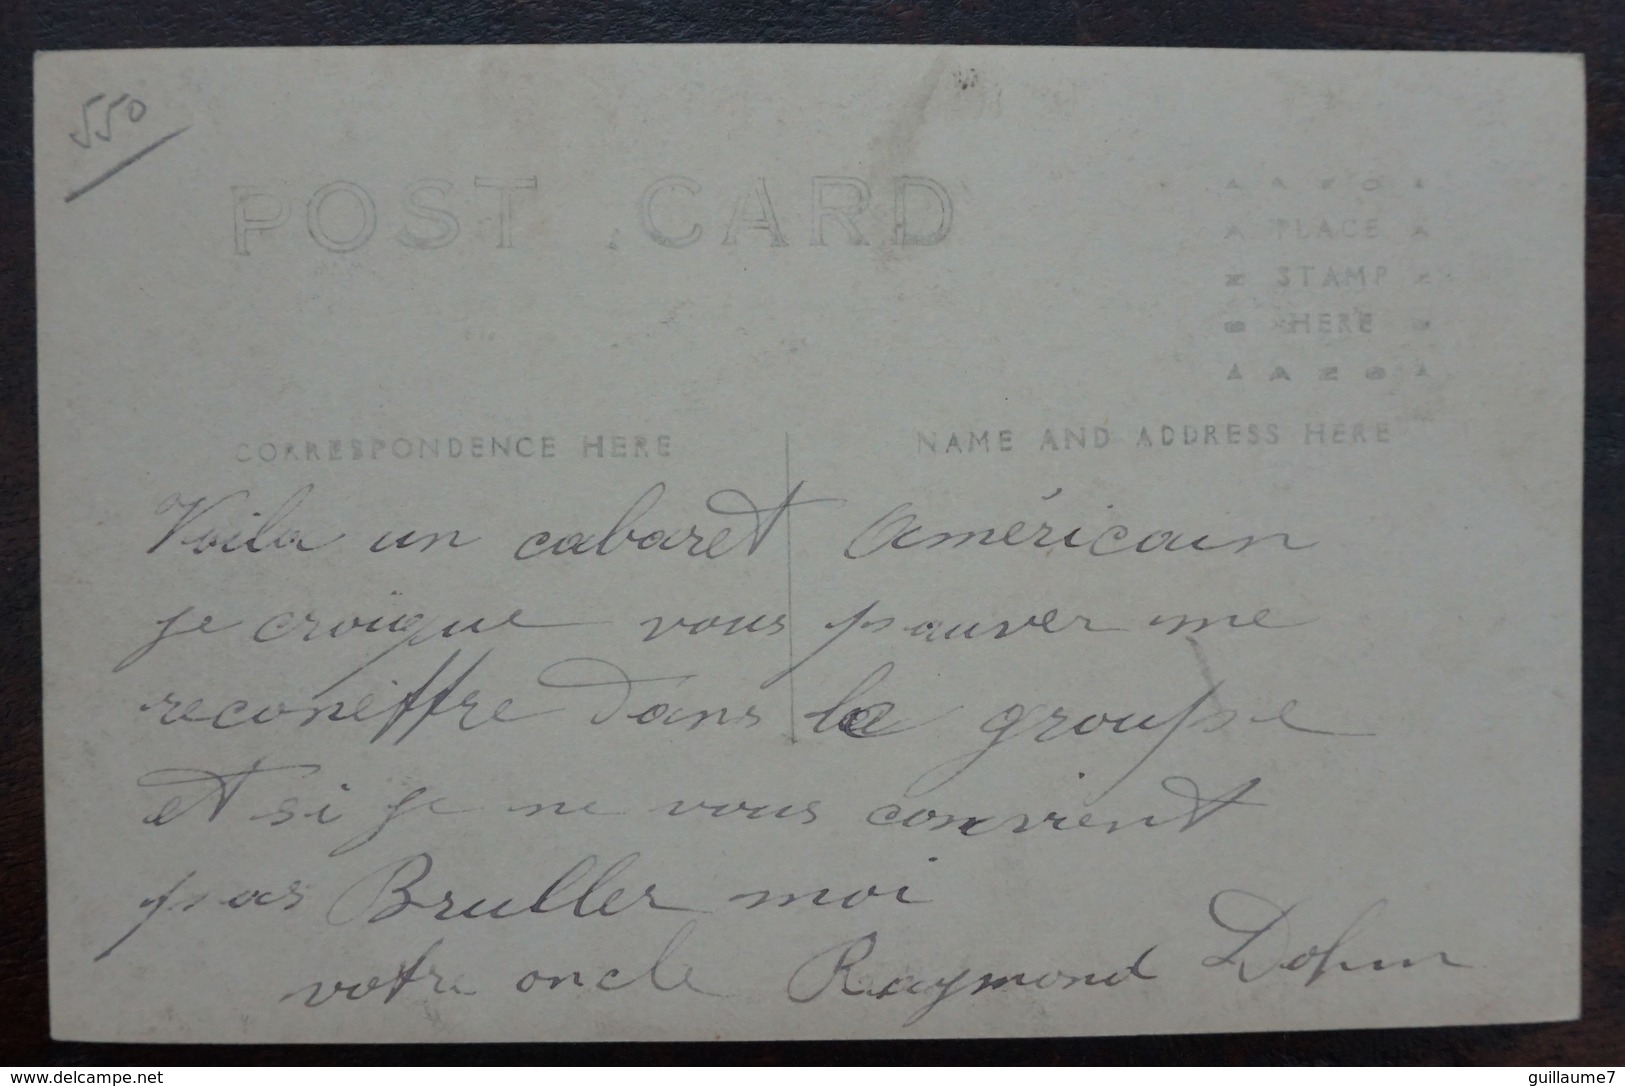 550
POST CARD
AZO
PLACE
STAMP
HERE
AZO
CORRESPONDENCE HERE
NAME AND ADDRESS HERE
Voila un cabaret américain
je croique vous pauver me
reconèffre dans la groupe
et si je ne vous convient
pas Bruller moi
votre oncle Raymond Dohm
www.delcampe.net
guillaume7